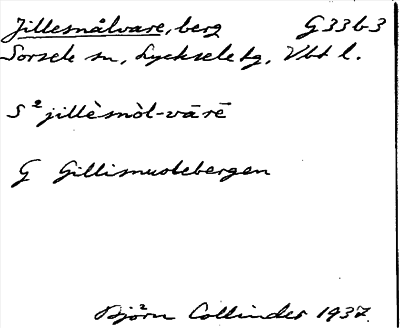 Jillesnålvare, berg G 33 b 3
Sorsele sn, Lycksele tg, Vbt l.
S² jillèsnòl-vārē
G Gillisnuolebergen
Björn Collinder 1937.